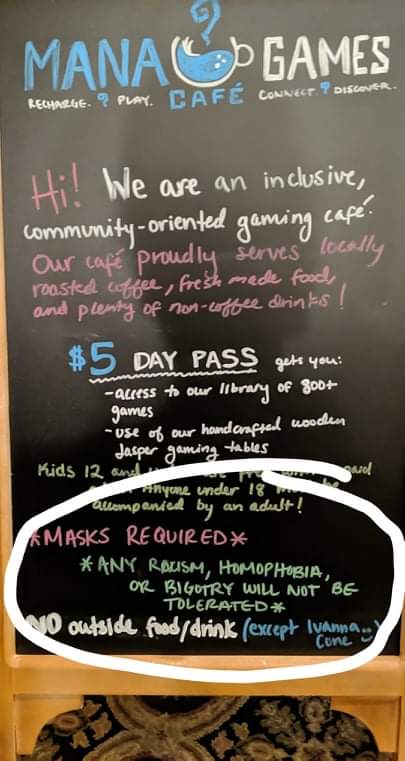 MANA GAMES
RECHARGE. PLAY. CAFÉ CONNECT. DISCOVER.
Hi! We are an inclusive,
community-oriented gaming café.
Our café proudly serves locally
roasted coffee, fresh made food,
and plenty of non-coffee drinks!
$5 DAY PASS gets you:
-access to our library of 800+
games
-use of our handcrafted wooden
Jasper gaming tables
Kids 12 and
anyone under 18 must be
accompanied by an adult!
*MASKS REQUIRED*
*ANY RACISM, HOMOPHOBIA,
OR BIGOTRY WILL NOT BE
TOLERATED*
NO outside food/drink (except Ivanna
Cone)